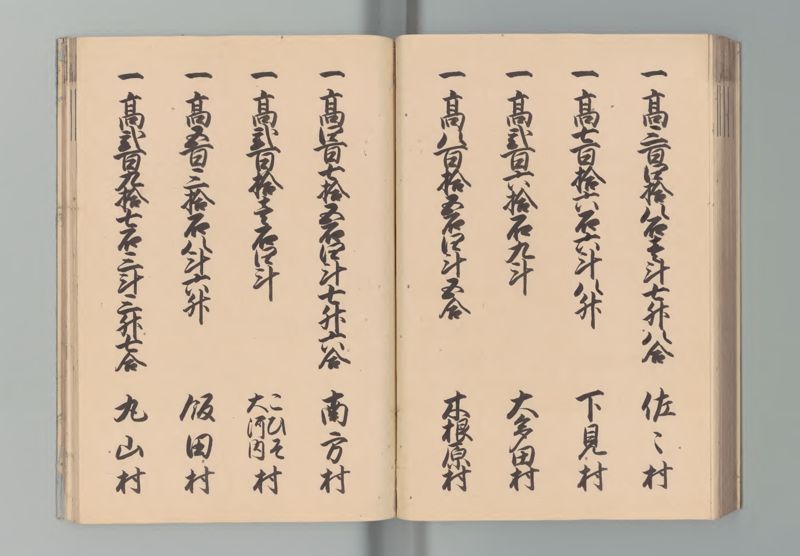 一 高三百四拾八石壱斗七升八合 佐々村
一 高七百拾六石六斗八升 下見村
一 高弐百六拾石九斗 大多田村
一 高八百拾五石四斗五合 木根原村
一 高四百七拾五石四斗七升六合 南方村
一 高弐百拾壱石四斗 こひそ 大河内村
一 高五百三拾石八斗六升 飯田村
一 高弐百九拾七石三斗三升七合 丸山村